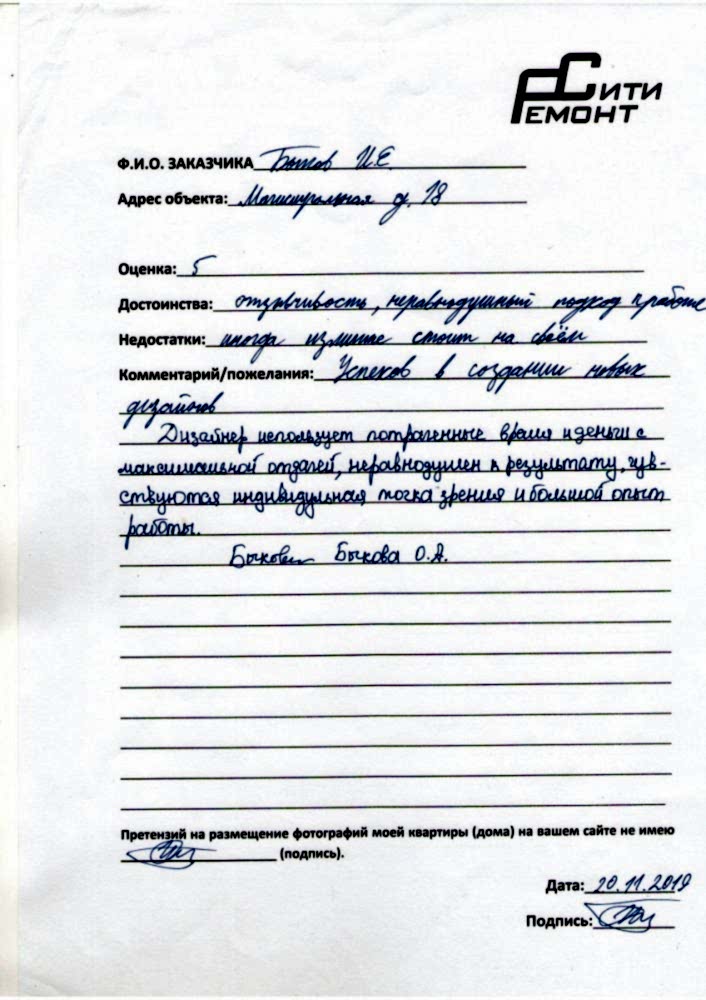 СИТИ
РЕМОНТ
Ф.И.О. ЗАКАЗЧИКА Быков И.Е.
Адрес объекта: Магистральная д. 18
Оценка: 5
Достоинства: отзывчивость, неравнодушный подход к работе
Недостатки: иногда излишне стоит на своём
Комментарий/пожелания: Успехов в создании новых
дизайнов
Дизайнер использует потраченные время и деньги с
максимальной отдачей, неравнодушен к результату, чув-
ствуются индивидульная точка зрения и большой опыт
работы.
Быкова О.А.
Претензий на размещение фотографий моей квартиры (дома) на вашем сайте не имею
(подпись).
Дата: 20.11.2019
Подпись: